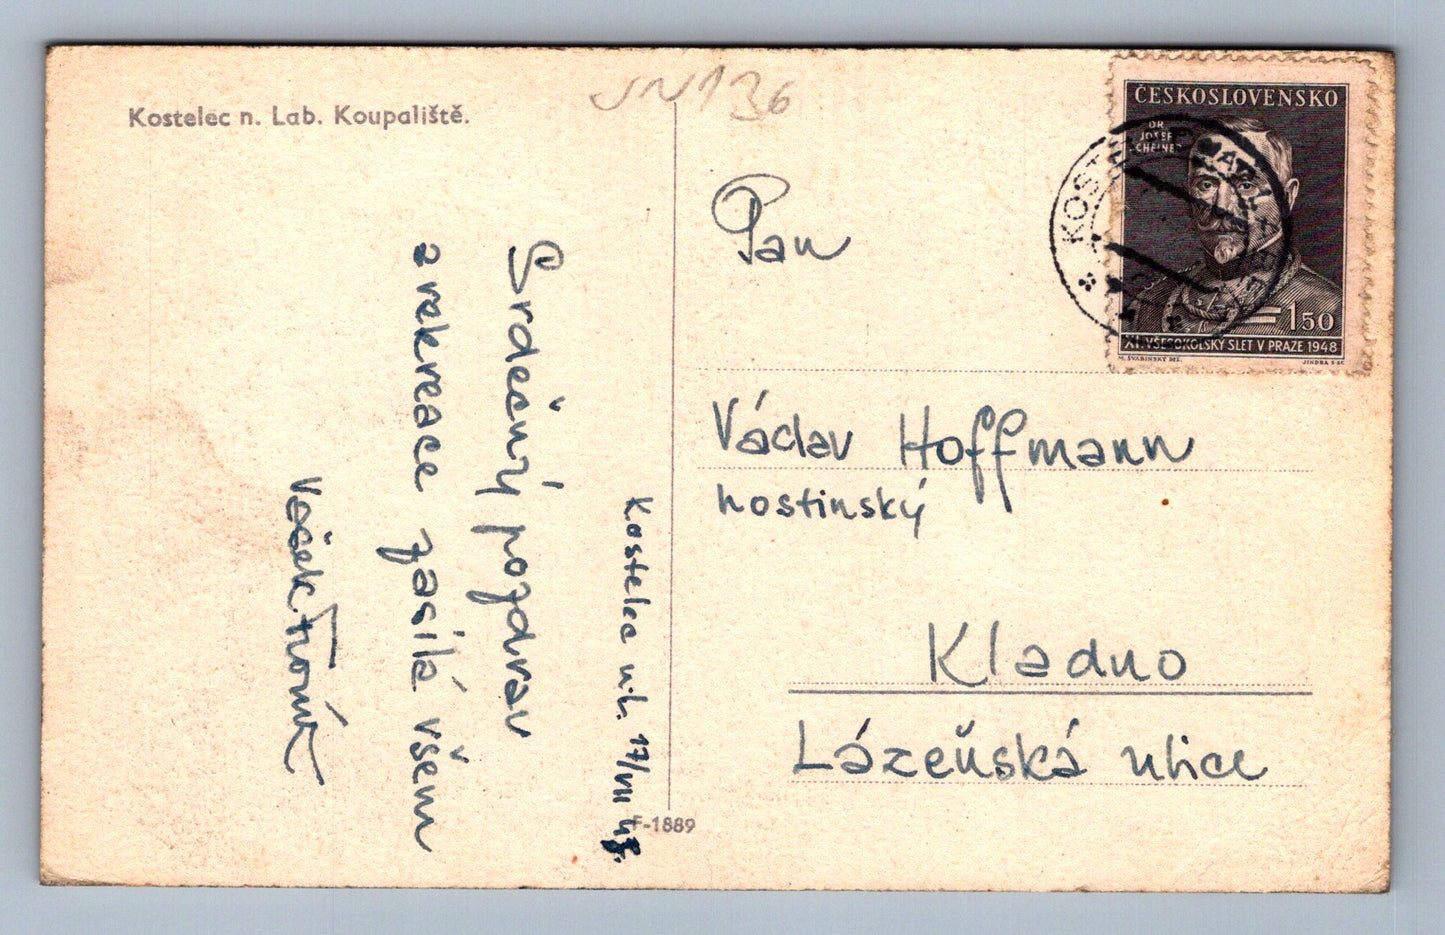 Kostelec n. Lab. Koupaliště.
JN136
ČESKOSLOVENSKO
DR
JOSEF
SCHEINER
1.50
XI. VŠESOKOLSKÝ SLET V PRAZE 1948
M. ŠVABINSKÝ DEL.
JINDRA SC.
KOSTELEC NAD LABEM
Kostelec n.L. 17/VII 48.
Srdečný pozdrav
z rekreace zasílá všem
Vašek
Pan
Václav Hoffmann
hostinský
Kladno
Lázeňská ulice
F-1889